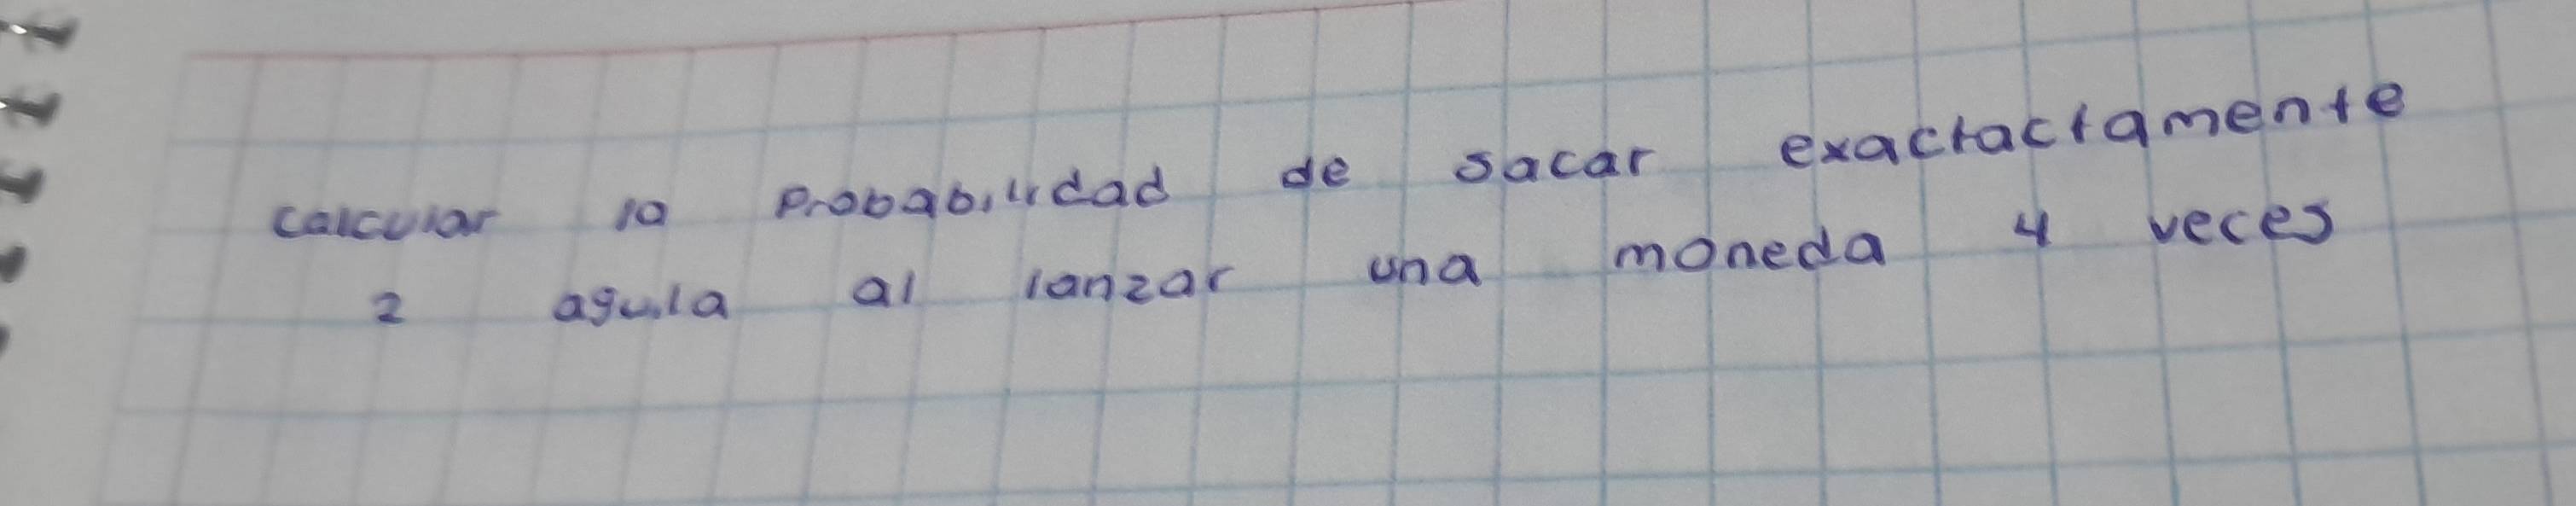 calcular la probabilidad de sacar exactactamente
2 aguila al lanzar una moneda 4 veces